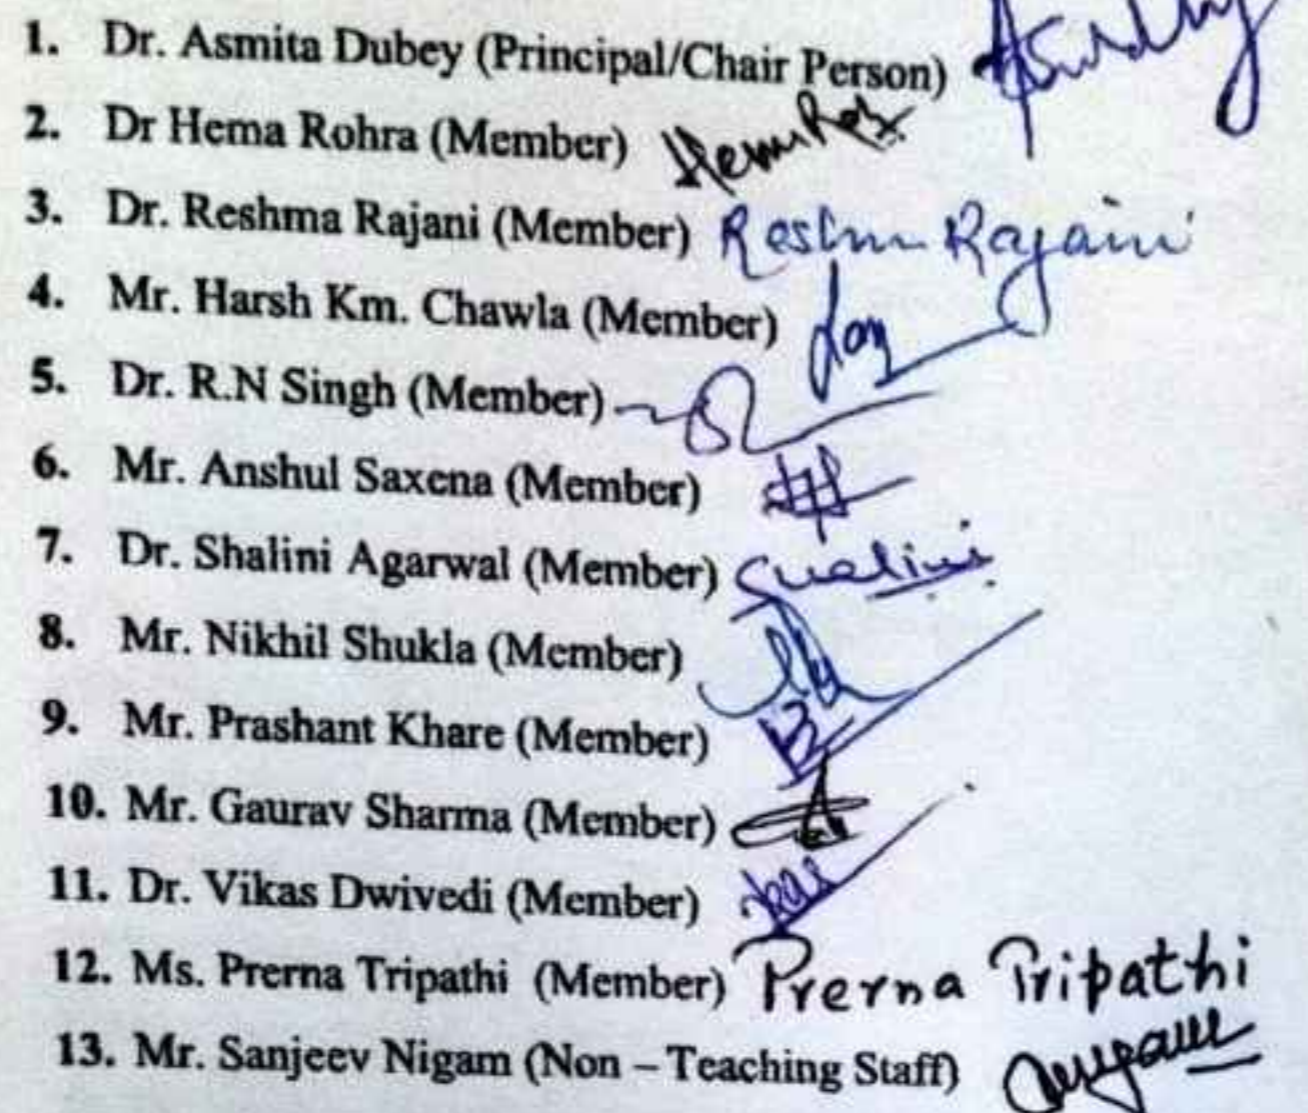 1. Dr. Asmita Dubey (Principal/Chair Person)
2. Dr Hema Rohra (Member)
3. Dr. Reshma Rajani (Member) Reshma Rajani
4. Mr. Harsh Km. Chawla (Member)
5. Dr. R.N Singh (Member)
6. Mr. Anshul Saxena (Member)
7. Dr. Shalini Agarwal (Member) Shalini
8. Mr. Nikhil Shukla (Member)
9. Mr. Prashant Khare (Member)
10. Mr. Gaurav Sharma (Member)
11. Dr. Vikas Dwivedi (Member)
12. Ms. Prerna Tripathi (Member) Prerna Tripathi
13. Mr. Sanjeev Nigam (Non – Teaching Staff)